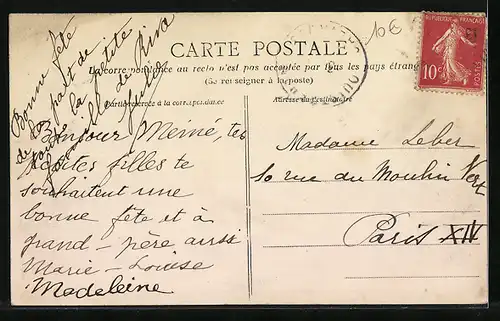 CARTE POSTALE
La correspondance au recto n'est pas acceptée par tous les pays étrang
(Se renseigner à la poste)
Partie réservée à la correspondance
Adresse du Destinataire
REPUBLIQUE FRANÇAISE
10c
POSTES
10€
Bonne fête
de la part de
toute la petite
famille
Riva
Bonjour Mémé, tes
petites filles te
souhaitent une
bonne fête et à
grand-père aussi
Marie-Louise
Madeleine
Madame Leber
10 rue du Moulin Vert
Paris XIV